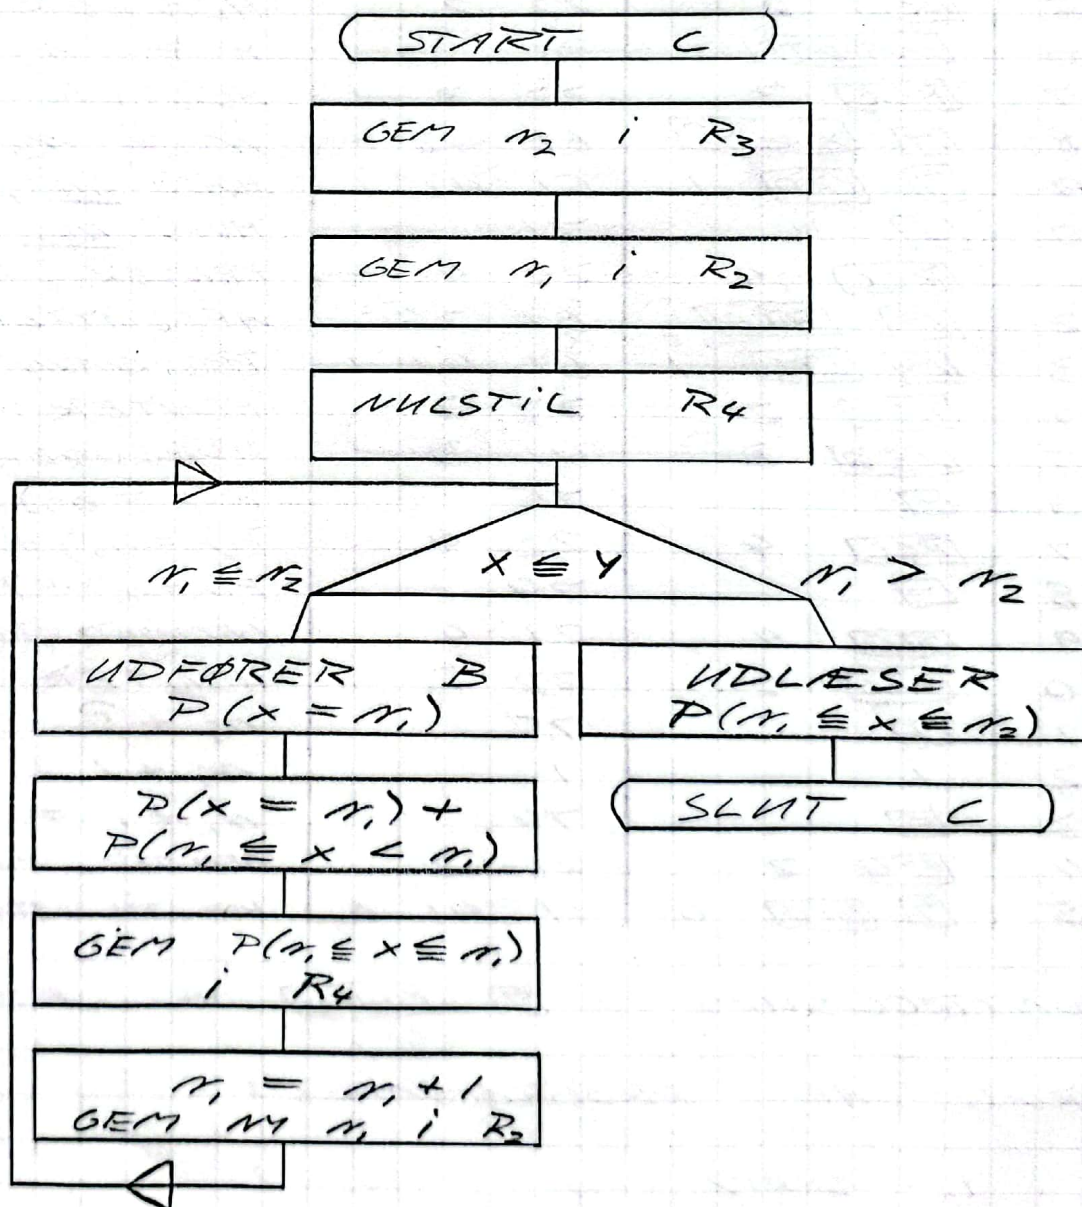 START C
GEM r₂ i R₃
GEM r₁ i R₂
NULSTIL R₄
X ≦ Y
r₁ ≦ r₂
r₁ > r₂
UDFØRER B
P(x = r₁)
P(x = r₁) +
P(r₁ ≦ x < r₁)
GEM P(r₁ ≦ x ≦ r₁)
i R₄
r₁ = r₁ + 1
GEM NY r₁ i R₂
UDLÆSER
P(r₁ ≦ x ≦ r₂)
SLUT C